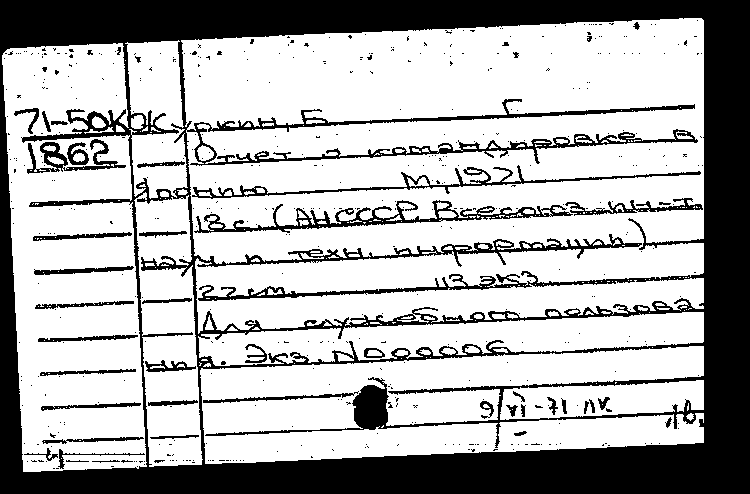 71-50КО Куркин, Б Г
1862 Отчет о командировке в
Японию М., 1971
18 с. (АН СССР. Всесоюз. ин-т
науч. и техн. информации).
27 см. 113 экз
Для служебного пользова-
ния. Экз. N000006
9/VI-71 ЛК